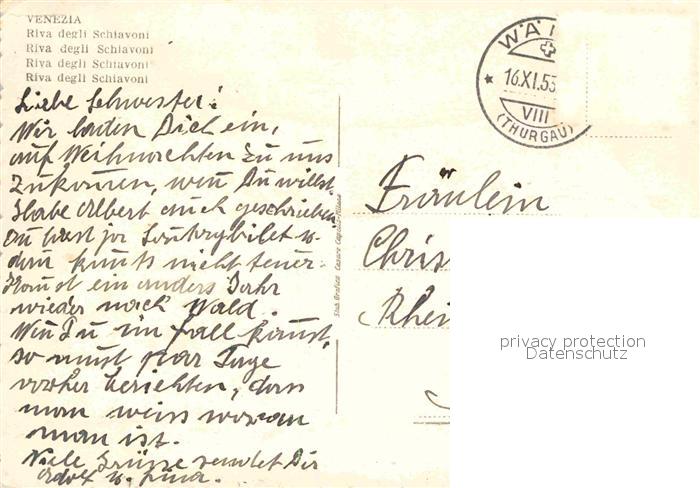 VENEZIA
Riva degli Schiavoni
Riva degli Schiavoni
Riva degli Schiavoni
Riva degli Schiavoni
Liebe Schwester!
Wir laden Dich ein,
auf Weihnachten zu uns
zu kommen, wen Du willst.
Habe Albert auch geschrieben
Du hast ja u.
dan nicht teuer.
ein anders Jahr
wieder nach Wald.
Wen Du im fall kanst,
so must par Tage
vorher berichten, dan
man weiss woran
man ist.
Viele Grüsse sendet Dir
Adolf u. Lina.
WÄ
16.XI.53
VIII
(THURGAU)
Fräulein
Chris
Rhei
privacy protection
Datenschutz